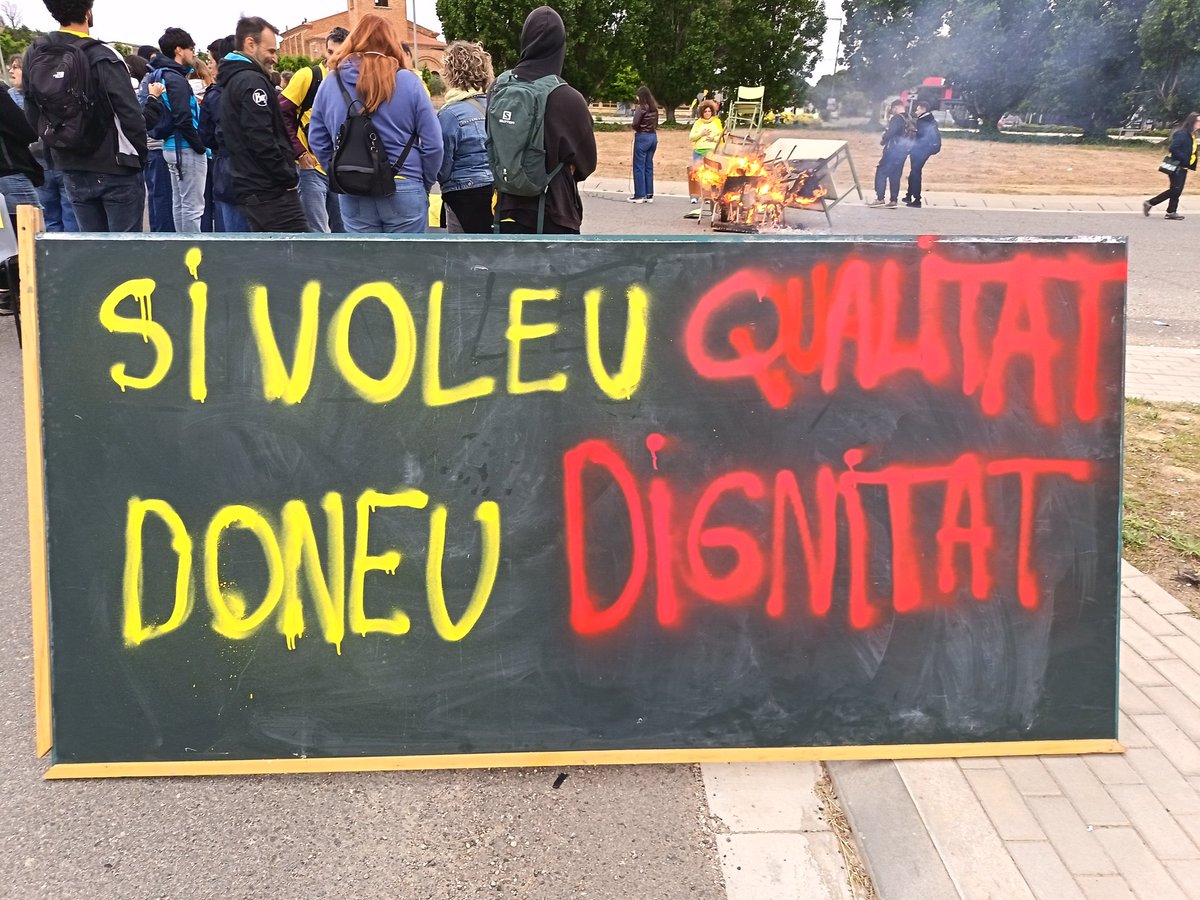 SI VOLEU QUALITAT
DONEU DIGNITAT